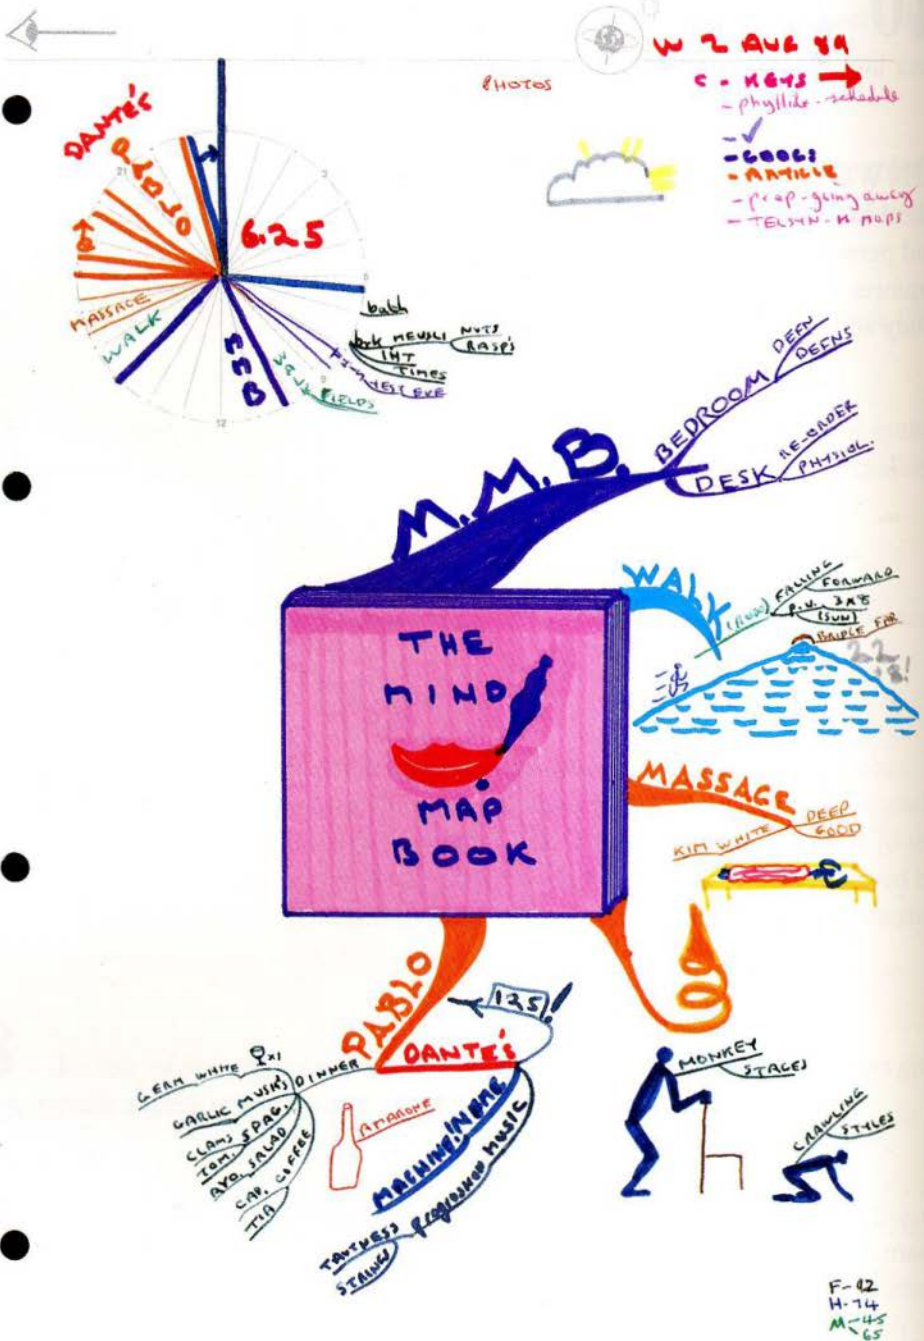 W 2 AUG 89
PHOTOS
C - KEYS
- phyllida - schedule
- ✓
- GOOGS
- ARTICLE
- prep - going away
- TELSYN - M MAPS
DANTE'S
PABLO
21
3
6.25
MASSAGE
WALK
M M B
12
bath
brk MEUSLI NUTS
RASP'S
IHT
TIMES
FIELDS
M.M.B.
BEDROOM
DEFN
DEFNS
DESK
RE-ORDER
PHYSIOL.
WALK
FALLING
FORWARD
P.U. 3x8
(SUN)
THE
MIND
MAP
BOOK
MASSAGE
DEEP
GOOD
KIM WHITE
PABLO
125!
DANTE'S
DINNER
GERM WHITE x1
GARLIC MUSH'S
CLAMS SPAG.
TOM.
AVO. SALAD
CAP. COFFEE
TIA
AMARONE
MACHINE IN ME
progression MUSIC
TAUTNESS
STRINGS
MONKEY
STAGES
CRAWLING
STYLES
F-92
H-74
M-45
65